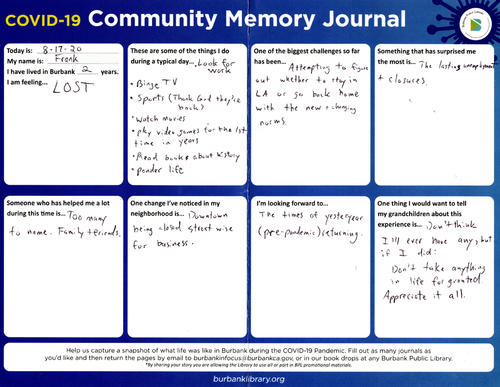 COVID-19 Community Memory Journal
Today is: 8-17-20
My name is: Frank
I have lived in Burbank 2 years.
I am feeling... LOST
These are some of the things I do
during a typical day... Look for
work
• Binge TV
• Sports (Thank God they're
back)
• Watch movies
• play video games for the 1st
time in years
• Read books about history
• ponder life
One of the biggest challenges so far
has been... Attempting to figure
out whether to stay in
LA or go back home
with the new & changing
norms.
Something that has surprised me
the most is... The lasting unemployment
& closures.
Someone who has helped me a lot
during this time is... Too many
to name. Family & friends.
One change I've noticed in my
neighborhood is... Downtown
being closed street wise
for business.
I'm looking forward to...
The times of yesteryear
(pre-pandemic) returning.
One thing I would want to tell
my grandchildren about this
experience is... Don't think
I'll ever have any, but
if I did:
Don't take anything
in life for granted.
Appreciate it all.
Help us capture a snapshot of what life was like in Burbank during the COVID-19 Pandemic. Fill out as many journals as
you'd like and then return the pages by email to burbankinfocus@burbankca.gov, or in our book drops at any Burbank Public Library.
*By sharing your story you are allowing the Library to use all or part in BPL promotional materials.
burbanklibrary.org